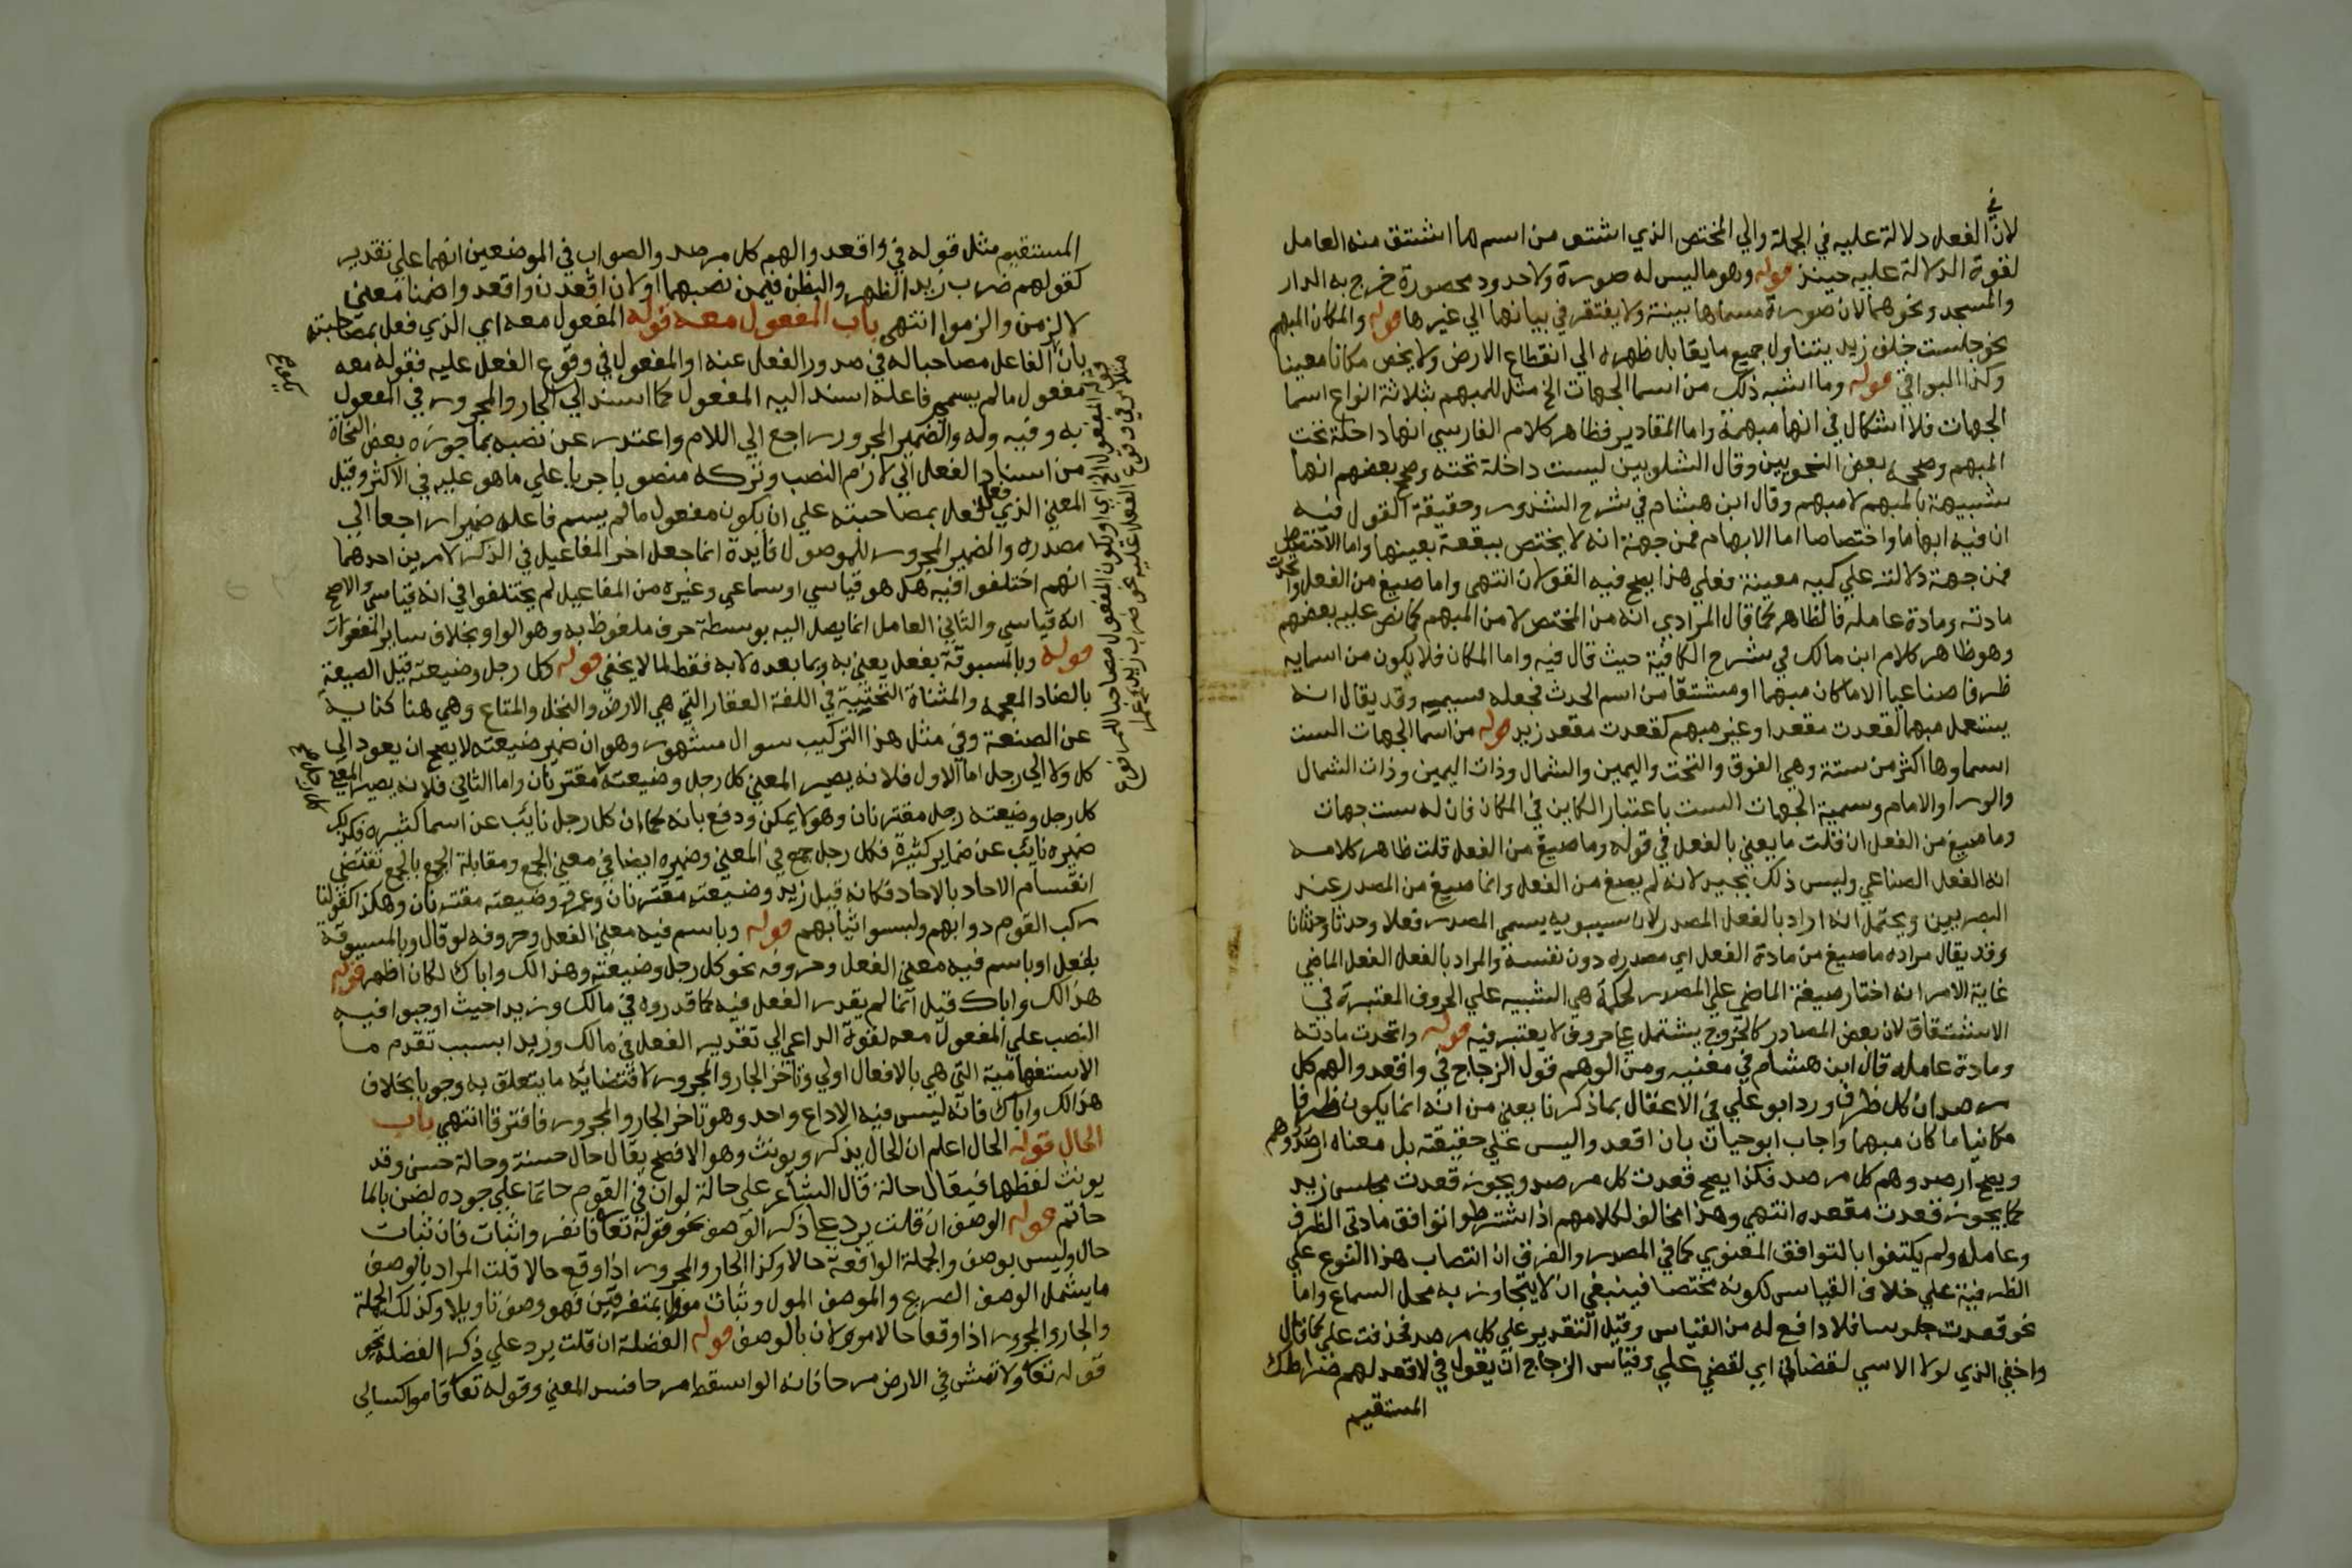 لان في الفعل دلالة عليه في الجملة والي المختص الذي اشتق من اسم ما اشتق منه العامل
لقوة الدلالة عليه حينئذ قوله وهو ما ليس له صورة ولا حدود محصورة خرج به الدار
والمسجد ونحوهما لان صورة مسماها بينة ولا يفتقر في بيانها الي غيرها قوله والمكان المبهم
نحو جلست خلف زيد يتناول جميع ما يقابل ظهره الي انقطاع الارض ولا يخص مكانا معينا
وكذا البواقي قوله وما اشبه ذلك من اسما الجهات الخ مثل للمبهم بثلاثة انواع اسما
الجهات فلا اشكال في انها مبهمة واما المقادير فظاهر كلام الفارسي انها داخلة تحت
المبهم وصححه بعض النحويين وقال الشلوبين ليست داخلة تحته وصحح بعضهم انها
شبيهة بالمبهم لا مبهم وقال ابن هشام في شرح الشذور وحقيقة القول فيه
ان فيه ابهاما واختصاصا اما الابهام فمن جهة انه لا يختص ببقعة بعينها واما الاختصاص
فمن جهة دلالته علي كميه معينة فعلي هذا يصح فيه القولان انتهي واما صيغ من الفعل واتحدت
مادته ومادة عامله فالظاهر كما قال المرادي انه من المختص لا من المبهم كما نص عليه بعضهم
وهو ظاهر كلام ابن مالك في شرح الكافية حيث قال فيه واما المكان فلا يكون من اسمايه
ظرفا صناعيا الا ما كان مبهما او مشتقا من اسم الحدث فجعله قسيمه وقد يقال انه
يستعمل مبهما كقعدت مقعدا وغير مبهم كقعدت مقعد زيد قوله من اسما الجهات الست
اسماوها اكثر من ستة وهي الفوق والتحت واليمين والشمال وذات اليمين وذات الشمال
والورا والامام وسمية الجهات الست باعتبار الكاين في المكان فان له ست جهات
وما صيغ من الفعل ان قلت ما يعني بالفعل في قوله وما صيغ من الفعل قلت ظاهر كلامه
انه الفعل الصناعي وليس ذلك بجيد لانه لم يصغ من الفعل وانما صيغ من المصدر عند
البصريين ويحتمل انه اراد بالفعل المصدر لان سيبويه يسمي المصدر فعلا وحدثا وحدثانا
وقد يقال مراده ما صيغ من مادة الفعل اي مصدره دون نفسه والمراد بالفعل الفعل الماضي
غاية الامر انه اختار صيغة الماضي علي المصدر لحكمة هي التنبيه علي الحروف المعتبرة في
الاشتقاق لان بعض المصادر كالخروج يشتمل علي حروف لا يعتبر فيه قوله واتحدت مادته
ومادة عامله قال ابن هشام في مغنيه ومن الوهم قول الزجاج في واقعدوا لهم كل
مرصد ان كل ظرف ورد ابو علي في الاغفال بما ذكرنا يعني من انه انما يكون ظرفا
مكانيا ما كان مبهما واجاب ابو حيان بان اقعدوا ليس علي حقيقته بل معناه ارصدوهم
ويصح ارصدوهم كل مرصد فكذا يصح قعدت كل مرصد ويجوز قعدت مجلس زيد
كما يجوز قعدت مقعده انتهي وهذا مخالف لكلامهم اذ اشترطوا توافق مادتي الظرف
وعامله ولم يكتفوا بالتوافق المعنوي كما في المصدر والفرق ان انتصاب هذا النوع علي
الظرفية علي خلاف القياس لكونه مختصا فينبغي ان لا يتجاوز به محل السماع واما
نحو قعدت جلوسا فلا دافع له من القياس وقيل التقدير علي كل مرصد فحذفت علي كما قال
واخفي الذي لولا الاسي لقضاني اي لقضي علي وقياس الزجاج ان يقول في لاقعدن لهم صراطك
المستقيم
المستقيم مثل قوله في واقعدوا لهم كل مرصد والصواب في الموضعين انهما علي تقدير
كقولهم ضرب زيد الظهر والبطن فيمن نصبهما او لان اقعدن واقعدوا ضمنا معني
لالزمن والزموا انتهي باب المفعول معه قوله المفعول معه اي الذي فعل بمصاحبته
بان الفاعل مصاحبا له في صدور الفعل عنه او المفعول في وقوع الفعل عليه فقوله معه
مفعول ما لم يسم فاعله اسند اليه المفعول كما اسند الي الجار والمجرور في المفعول
به وفيه وله والضمير المجرور راجع الي اللام واعتذر عن نصبه بما جوزه بعض النحاة
من اسناد الفعل الي لازم النصب وتركه منصوبا جريا علي ما هو عليه في الاكثر وقيل
المعني الذي فعل فعل بمصاحبته علي ان يكون مفعول ما لم يسم فاعله ضميرا راجعا الي
مصدره والضمير المجرور للموصول فايدة انما جعل اخر المفاعيل في الذكر لامرين احدهما
انهم اختلفوا فيه هل هو قياسي او سماعي وغيره من المفاعيل لم يختلفوا في انه قياسي والاصح
انه قياسي والثاني العامل انما يصل اليه بوسطة حرف ملفوظ به وهو الواو بخلاف ساير المفعولات
قوله وبالمسبوقة بفعل يعني به وبما بعده لا به فقط لما لا يخفي قوله وكل رجل وضيعته قيل الضيعة
بالضاد المعجمة والمثناة التحتية في اللغة العقار التي هي الارض والنخل والمتاع وهي هنا كناية
عن الصنعة وفي مثل هذا التركيب سوال مشهور وهو ان ضمير ضيعته لا يصح ان يعود الي
كل ولا الي رجل اما الاول فلانه يصير المعني كل رجل وضيعته مقترنان واما الثاني فلانه يصير المعني
كل رجل وضيعته رجل مقترنان وهو لا يمكن ودفع بانه كما ان كل رجل نايب عن اسما كثيره فكذلك
ضميره نايب عن ضماير كثيرة فكل رجل جمع في المعني وضميره ايضا في معني الجمع ومقابلة الجمع بالجمع تقتضي
انقسام الاحاد بالاحاد فكانه قيل زيد وضيعته مقترنان وعمرو وضيعته مقترنان وهكذا كقولنا
ركب القوم دوابهم ولبسوا ثيابهم قوله وباسم فيه معني الفعل وحروفه لو قال وبالمسبوقة
بفعل او باسم فيه معني الفعل وحروفه نحو كل رجل وضيعته وهذا لك واباك لكان اظهر قوله
هذا لك واباك قيل انما لم يقدر الفعل فيه كما قدروه في مالك وزيدا حيث اوجبوا فيه
النصب علي المفعول معه لقوة الداعي الي تقدير الفعل في مالك وزيدا بسبب تقدم ما
الاستفهامية التي هي بالافعال اولي وتاخر الجار والمجرور لاقتضايه ما يتعلق به وجوبا بخلاف
هذا لك واباك فانه ليس فيه الا داع واحد وهو تاخر الجار والمجرور فافترقا انتهي باب
الحال قوله الحال اعلم ان الحال يذكر ويونث وهو الافصح يقال حال حسنة وحالة حسن وقد
يونث لفظها فيقال حالة قال الشاعر علي حالة لو ان في القوم حاتما علي جوده لضن بالما
حاتم قوله الوصف ان قلت يرد علي ذكر الوصف نحو قوله تعالي فانفروا ثبات فان ثبات
حال وليس بوصف والجملة الواقعة حالا وكذا الجار والمجرور اذا وقع حالا قلت المراد بالوصف
ما يشمل الوصف الصريح والموصف المول وثبات موول بمتفرقين فهو وصف تاويلا وكذلك الجملة
والجار والمجرور اذا وقعا حالا موولان بالوصف قوله الفضلة ان قلت يرد علي ذكر الفضلة نحو
قوله تعالي ولا تمش في الارض مرحا فانه لو اسقط مرحا فسد المعني وقوله تعالي قاموا كسالي